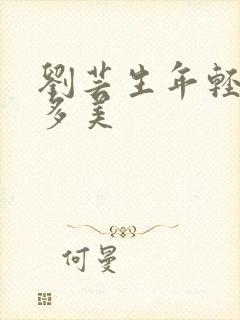 劉芸生年輕
多美
何曼